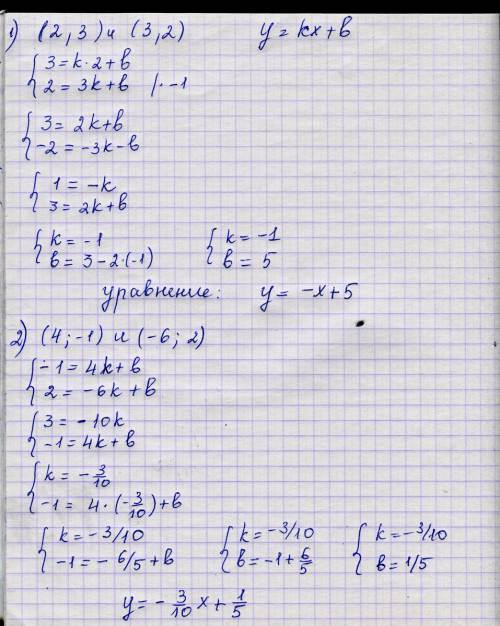 1) (2,3) и (3,2) y = kx + b
{ 3 = k·2 + b
{ 2 = 3k + b |·-1
{ 3 = 2k + b
{ -2 = -3k - b
{ 1 = -k
{ 3 = 2k + b
{ k = -1 { k = -1
{ b = 3 - 2·(-1) { b = 5
уравнение: y = -x + 5
2) (4; -1) и (-6; 2)
{ -1 = 4k + b
{ 2 = -6k + b
{ 3 = -10k
{ -1 = 4k + b
{ k = -3/10
{ -1 = 4·(-3/10) + b
{ k = -3/10 { k = -3/10 { k = -3/10
{ -1 = -6/5 + b { b = -1 + 6/5 { b = 1/5
y = -3/10 x + 1/5